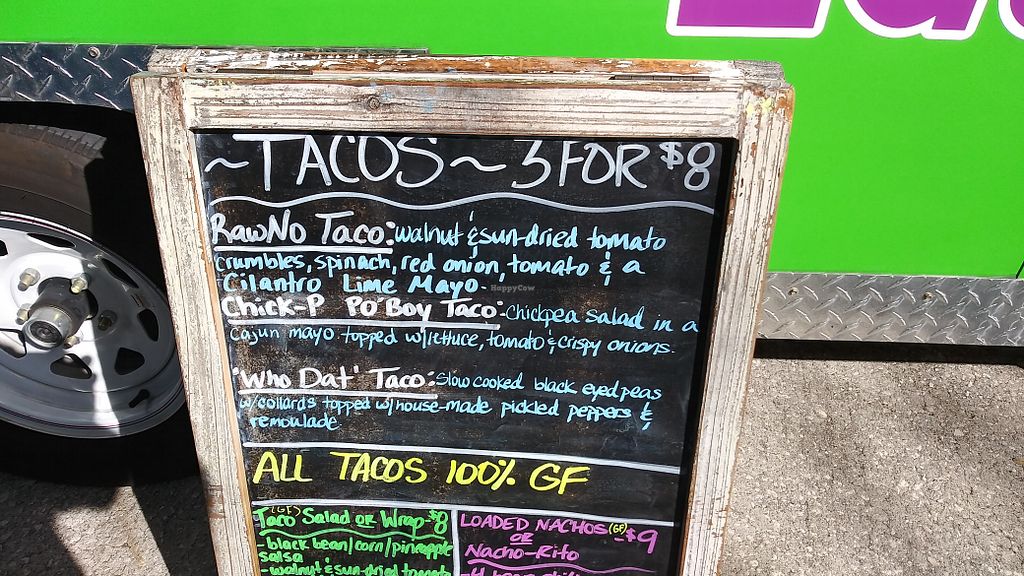 ~TACOS~ 3 FOR $8
RawNo Taco: walnut & sun-dried tomato
crumbles, spinach, red onion, tomato & a
Cilantro Lime Mayo.
Chick-P Po'Boy Taco: Chickpea Salad in a
Cajun mayo topped w/lettuce, tomato & crispy onions.
'Who Dat' Taco: Slow cooked black eyed peas
w/collards topped w/house-made pickled peppers &
remoulade
ALL TACOS 100% GF
(GF)
Taco Salad or Wrap-$8
-black bean/corn/pineapple
salsa
-walnut & sun-dried tomato
LOADED NACHOS (GF) -$9
OR
Nacho-Rito
HappyCow